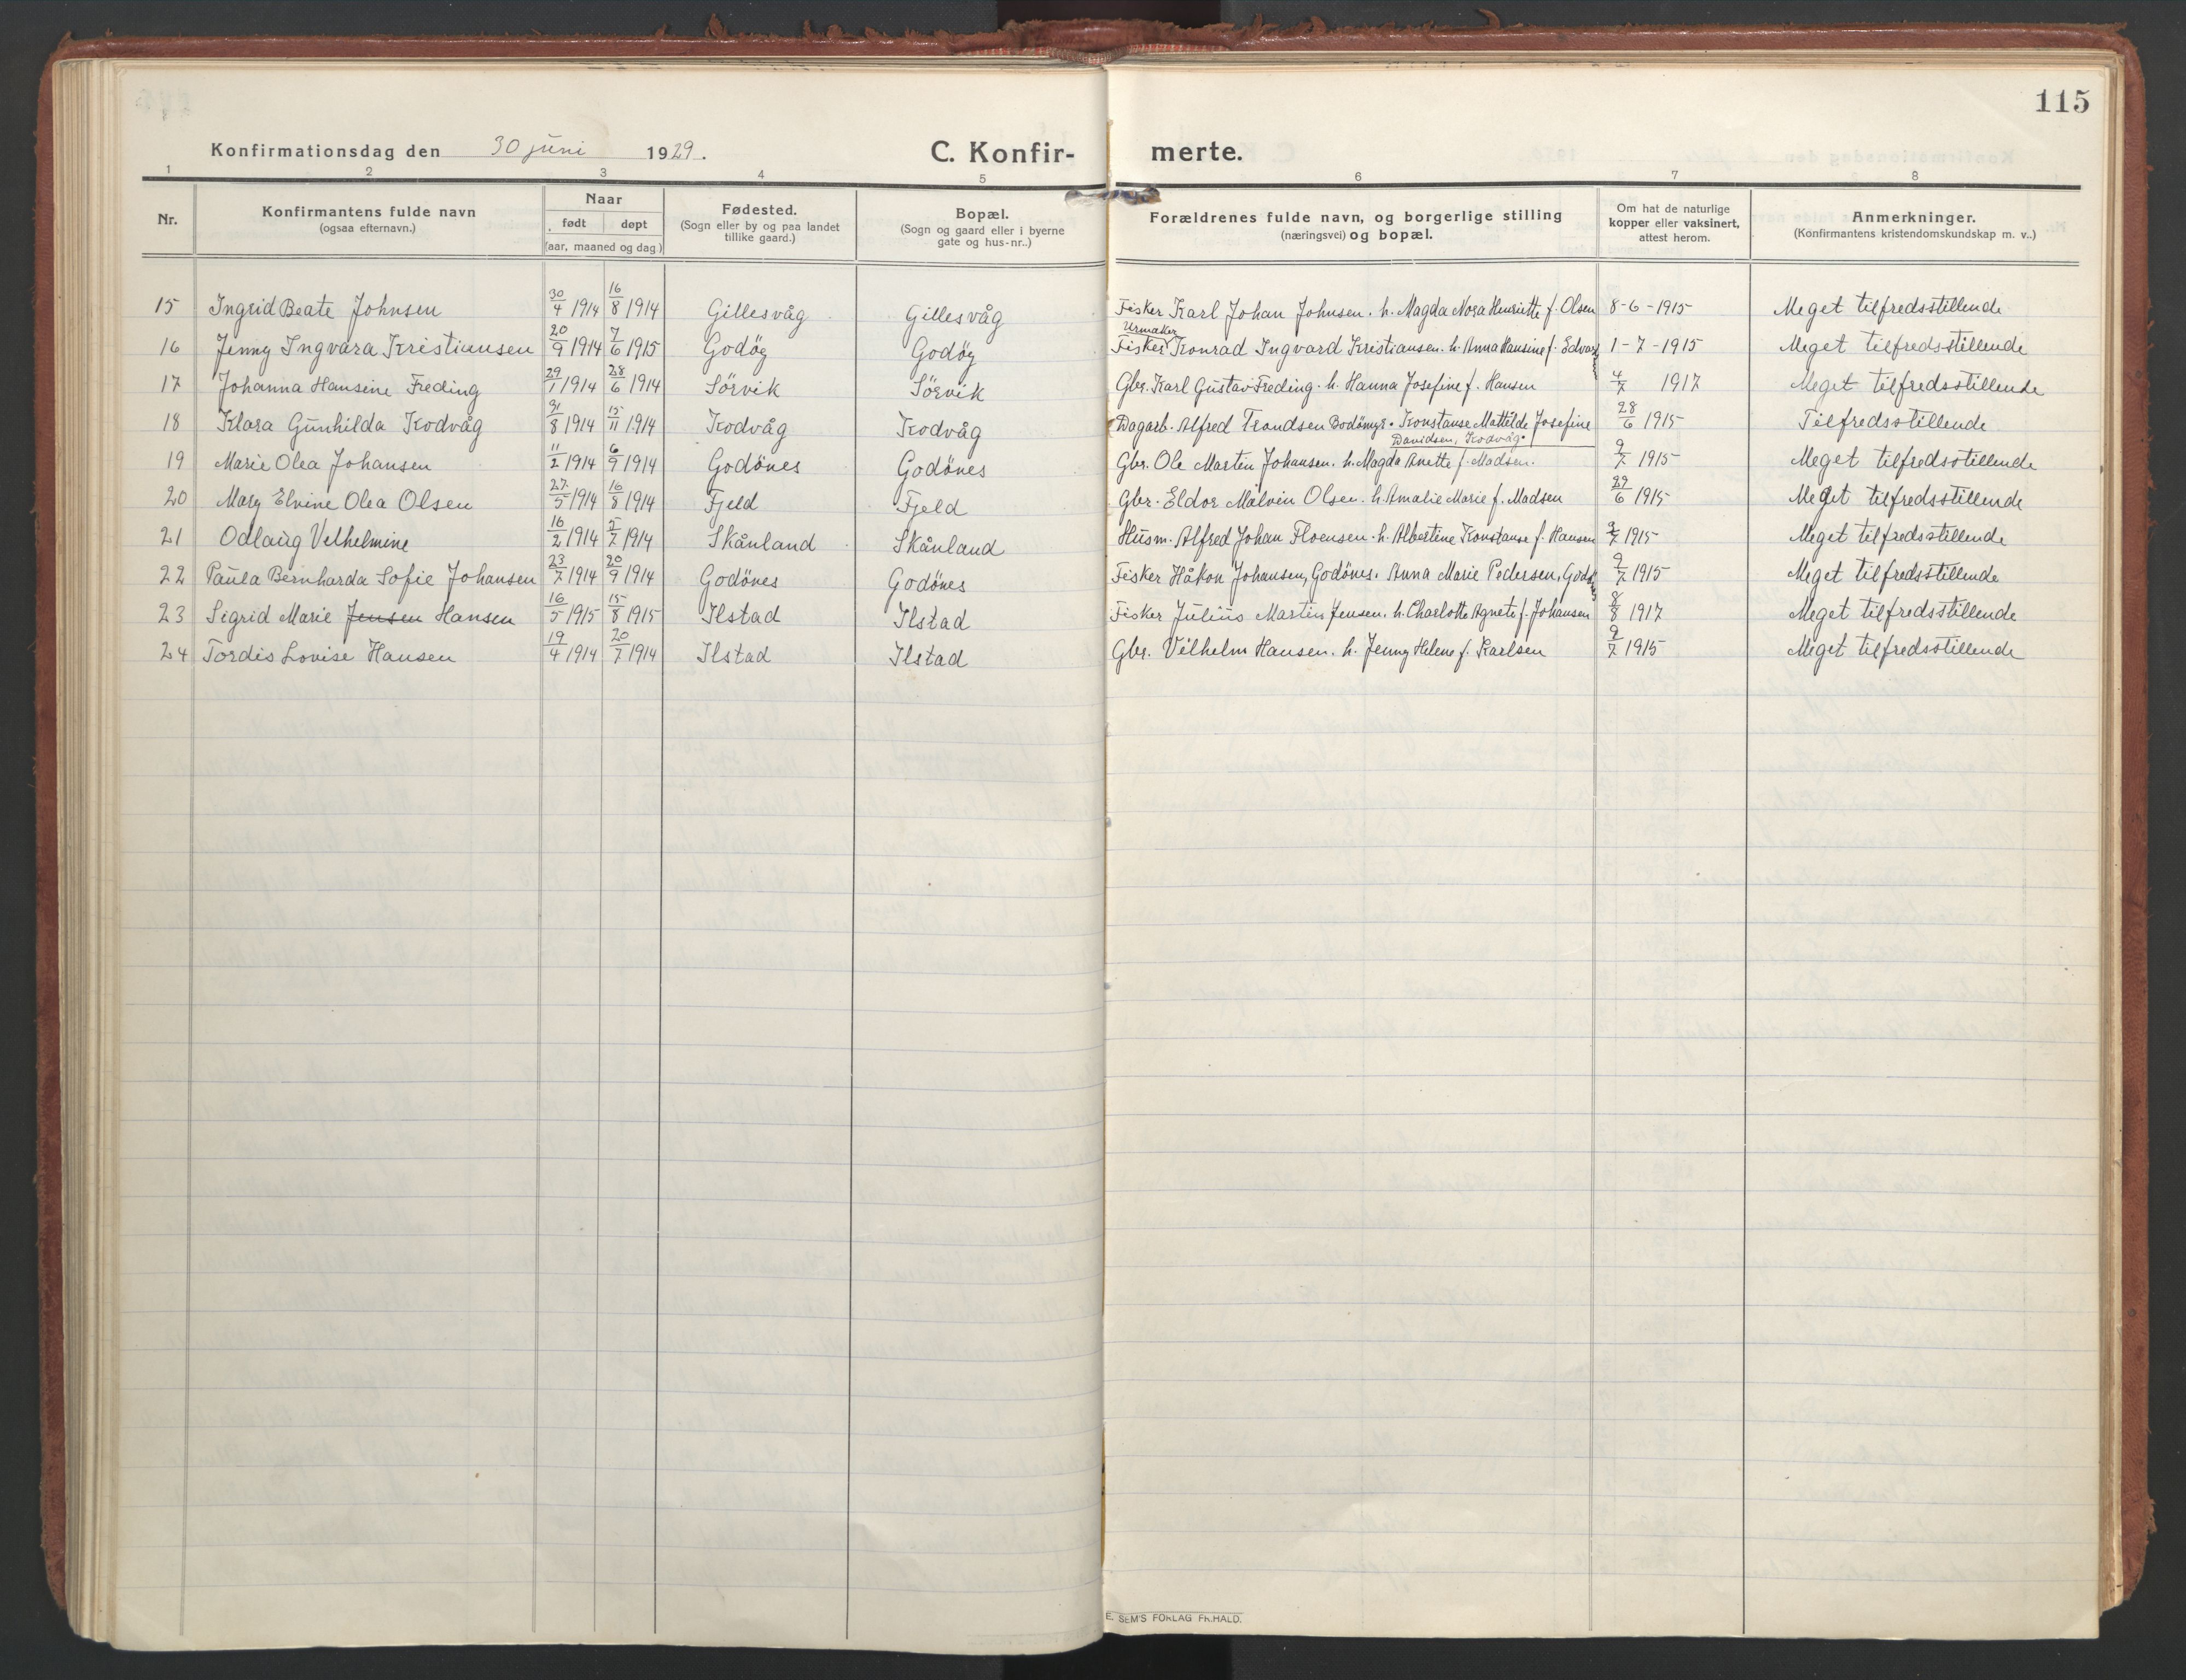 115
Konfirmationsdag den 30 juni 1929. C. Konfir- merte.
1 2 3 4 5 6 7 8
Nr. Konfirmantens fulde navn (ogsaa efternavn.) Naar født døpt (aar, maaned og dag) Fødested. (Sogn eller by og paa landet tillike gaard.) Bopæl. (Sogn og gaard eller i byerne gate og hus-nr..) Forældrenes fulde navn, og borgerlige stilling (næringsvei) og bopæl. Om hat de naturlige kopper eller vaksinert, attest herom. Anmerkninger. (Konfirmantens kristendomskundskap m. v..)
15 Ingrid Beate Johnsen 30/4 1914 16/8 1914 Gillesvåg Gillesvåg Fisker Karl Johan Johnsen. h. Magda Nora Henriette f. Olsen 8-6-1915 Meget tilfredsstillende
Urmaker
16 Jenny Ingvara Kristiansen 20/9 1914 7/6 1915 Godöy Godöy Fisker Konrad Ingvard Kristiansen. h. Anna Hansine f. Edvardsen 1-7-1915 Meget tilfredsstillende
17 Johanna Hansine Freding 29/1 1914 28/6 1914 Sörvik Sörvik Gbr. Karl Gustav Freding. h. Hanna Josefine f. Hansen 4/7 1917 Meget tilfredsstillende
18 Klara Gunhilda Kodvåg 31/8 1914 15/11 1914 Kodvåg Kodvåg Dagarb. Alfred Trondsen Bodömyr. Konstanse Mathilde Josefine 28/6 1915 Tilfredsstillende
Davidsen, Kodvåg.
19 Marie Olea Johansen 11/2 1914 6/9 1914 Godönes Godönes Gbr. Ole Martin Johansen. h. Magda Anette f. Madsen. 9/7 1915 Meget tilfredsstillende
20 Mary Elvine Olea Olsen 27/5 1914 16/8 1914 Fjeld Fjeld Gbr. Eldor Malvin Olsen. h. Amalie Marie f. Madsen 29/6 1915 Meget tilfredsstillende
21 Odlaug Velhelmine 16/2 1914 5/7 1914 Skånland Skånland Husm. Alfred Johan Floensen. h. Albertine Konstanse f. Hansen 9/7 1915 Meget tilfredsstillende
22 Paula Bernharda Sofie Johansen 23/7 1914 20/9 1914 Godönes Godönes Fisker Håkon Johansen, Godönes. Anna Marie Pedersen, Godönes 9/7 1915 Meget tilfredsstillende
23 Sigrid Marie Jensen Hansen 16/5 1915 15/8 1915 Ilstad Ilstad Fisker Julius Martin Jensen. h. Charlotte Agnete f. Johansen 8/8 1917 Meget tilfredsstillende
24 Tordis Lovise Hansen 19/4 1914 20/7 1914 Ilstad Ilstad Gbr. Vilhelm Hansen. h. Jenny Helene f. Karlsen 9/7 1915 Meget tilfredsstillende
E. SEM'S FORLAG FR.HALD.